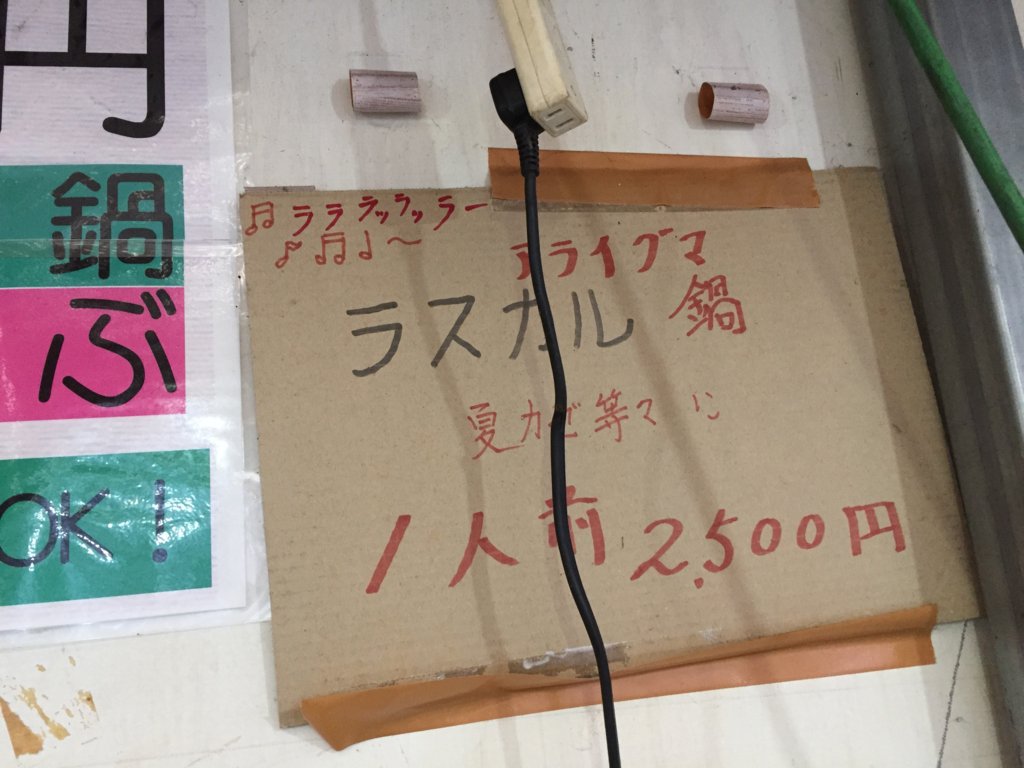 円
鍋
ぶ
OK!
♫ララ ラッラッラー
♪♫♩〜
アライグマ
ラスカル鍋
夏カゼ等々に
1人前2,500円